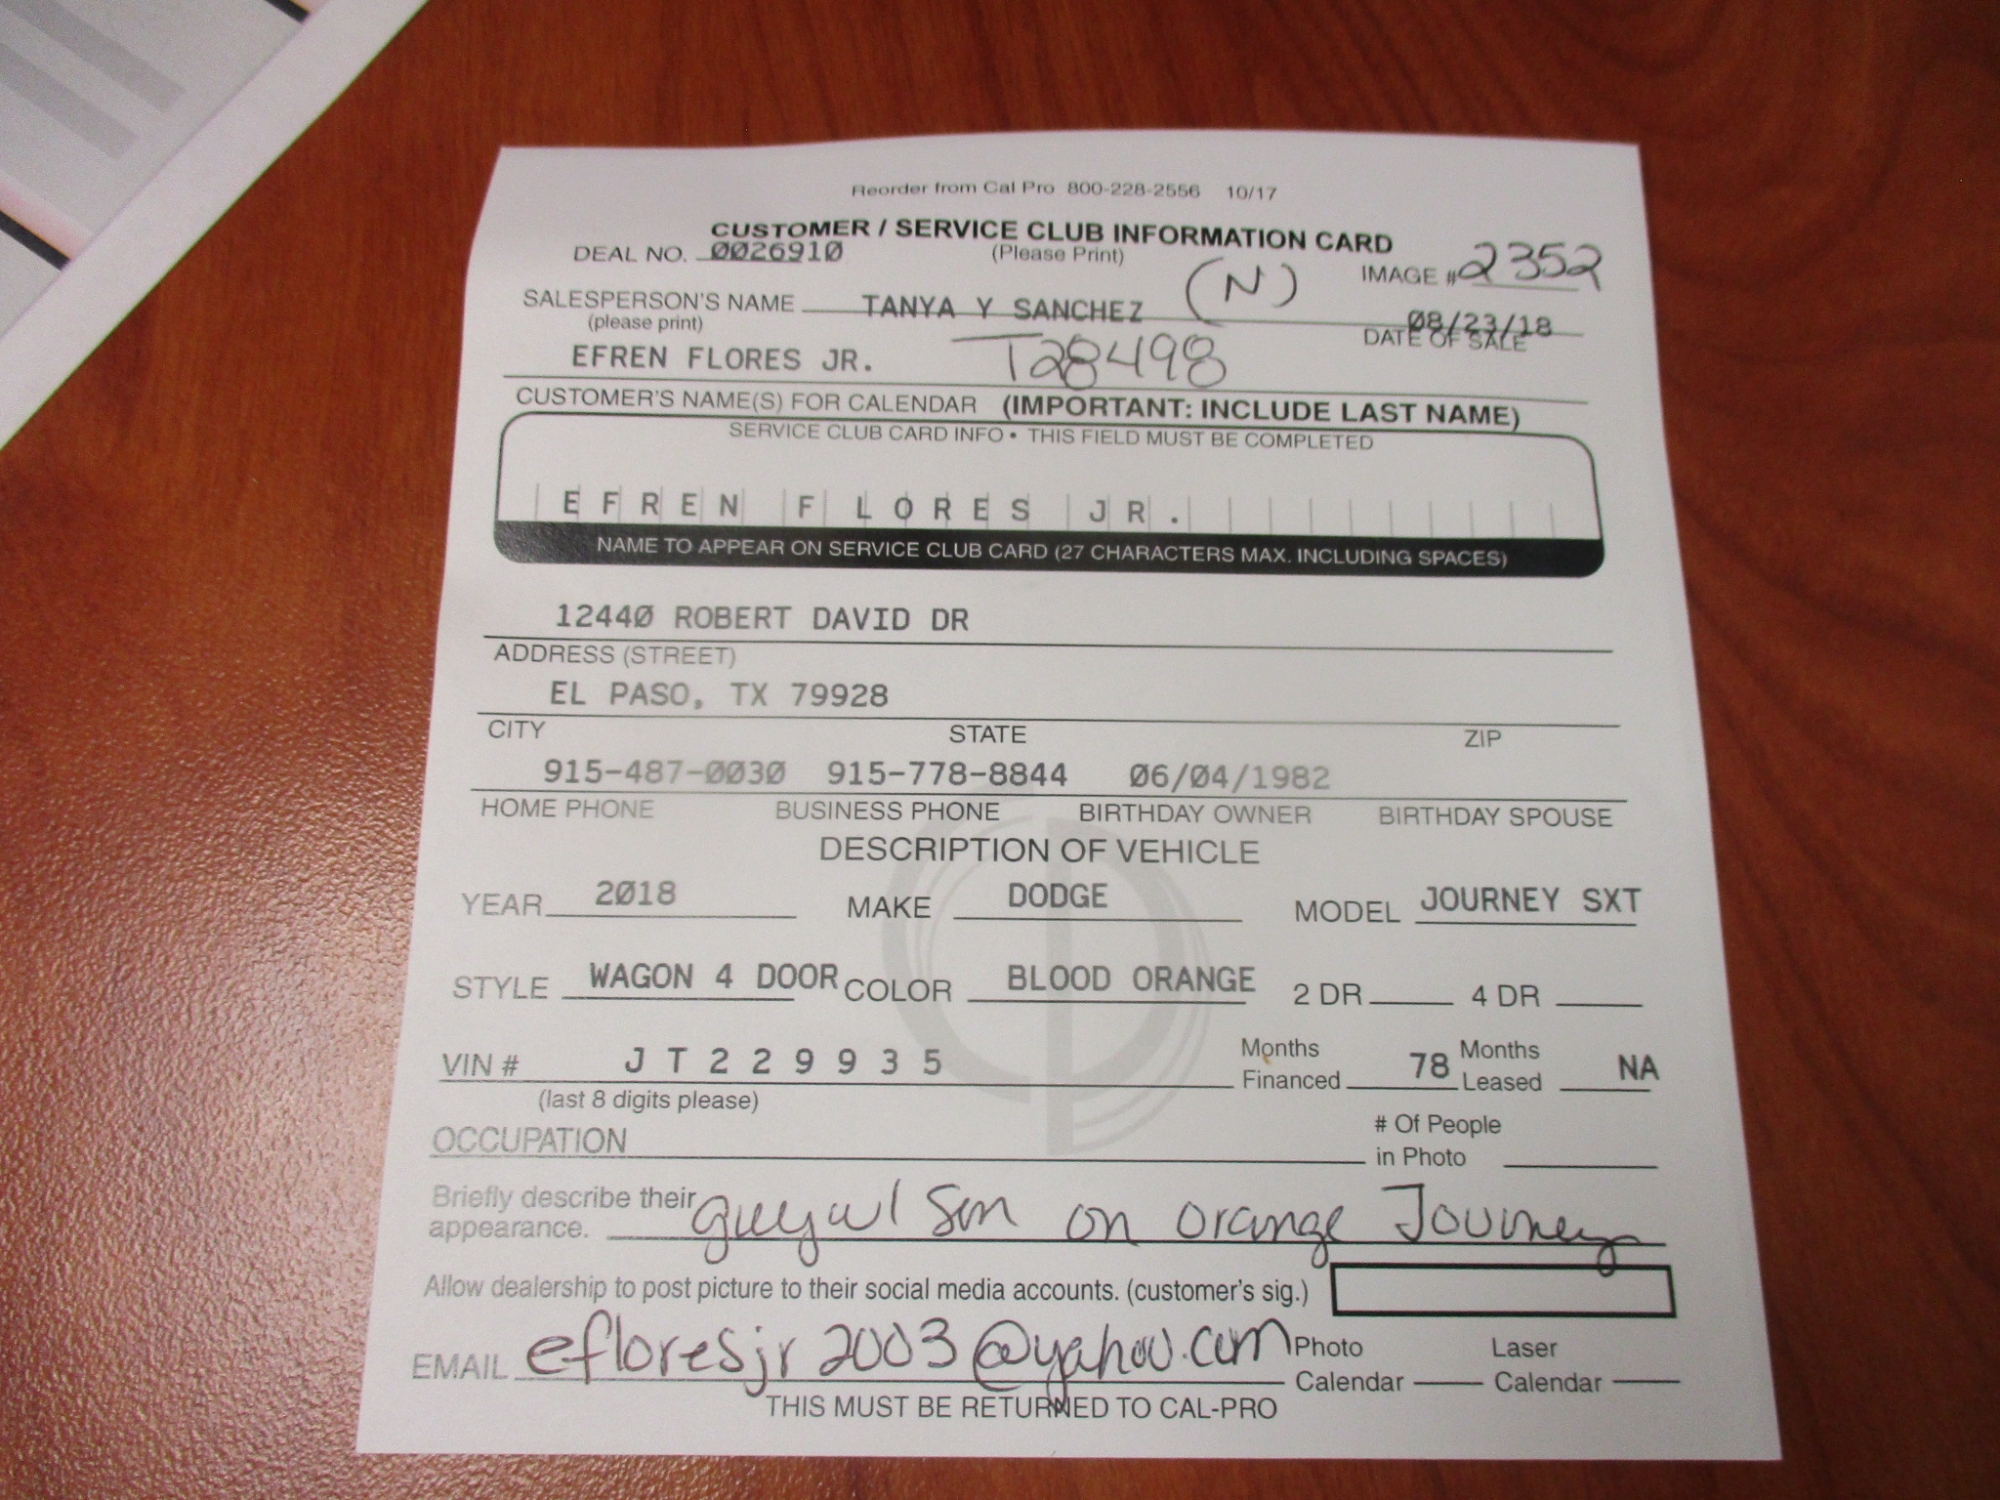 Reorder from Cal Pro 800-228-2556 10/17
CUSTOMER / SERVICE CLUB INFORMATION CARD
DEAL NO. 0026910 (Please Print) IMAGE # 2352
SALESPERSON'S NAME TANYA Y SANCHEZ (N) 08/23/18
(please print) DATE OF SALE
EFREN FLORES JR. T28498
CUSTOMER'S NAME(S) FOR CALENDAR (IMPORTANT: INCLUDE LAST NAME)
SERVICE CLUB CARD INFO • THIS FIELD MUST BE COMPLETED
EFREN FLORES JR.
NAME TO APPEAR ON SERVICE CLUB CARD (27 CHARACTERS MAX. INCLUDING SPACES)
12440 ROBERT DAVID DR
ADDRESS (STREET)
EL PASO, TX 79928
CITY STATE ZIP
915-487-0030 915-778-8844 06/04/1982
HOME PHONE BUSINESS PHONE BIRTHDAY OWNER BIRTHDAY SPOUSE
DESCRIPTION OF VEHICLE
YEAR 2018 MAKE DODGE MODEL JOURNEY SXT
STYLE WAGON 4 DOOR COLOR BLOOD ORANGE 2 DR 4 DR
VIN # JT229935 Months Financed 78 Months Leased NA
(last 8 digits please)
OCCUPATION # Of People in Photo
Briefly describe their appearance. guy w/ son on orange Journey
Allow dealership to post picture to their social media accounts. (customer's sig.)
EMAIL efloresjr2003@yahoo.com Photo Calendar Laser Calendar
THIS MUST BE RETURNED TO CAL-PRO